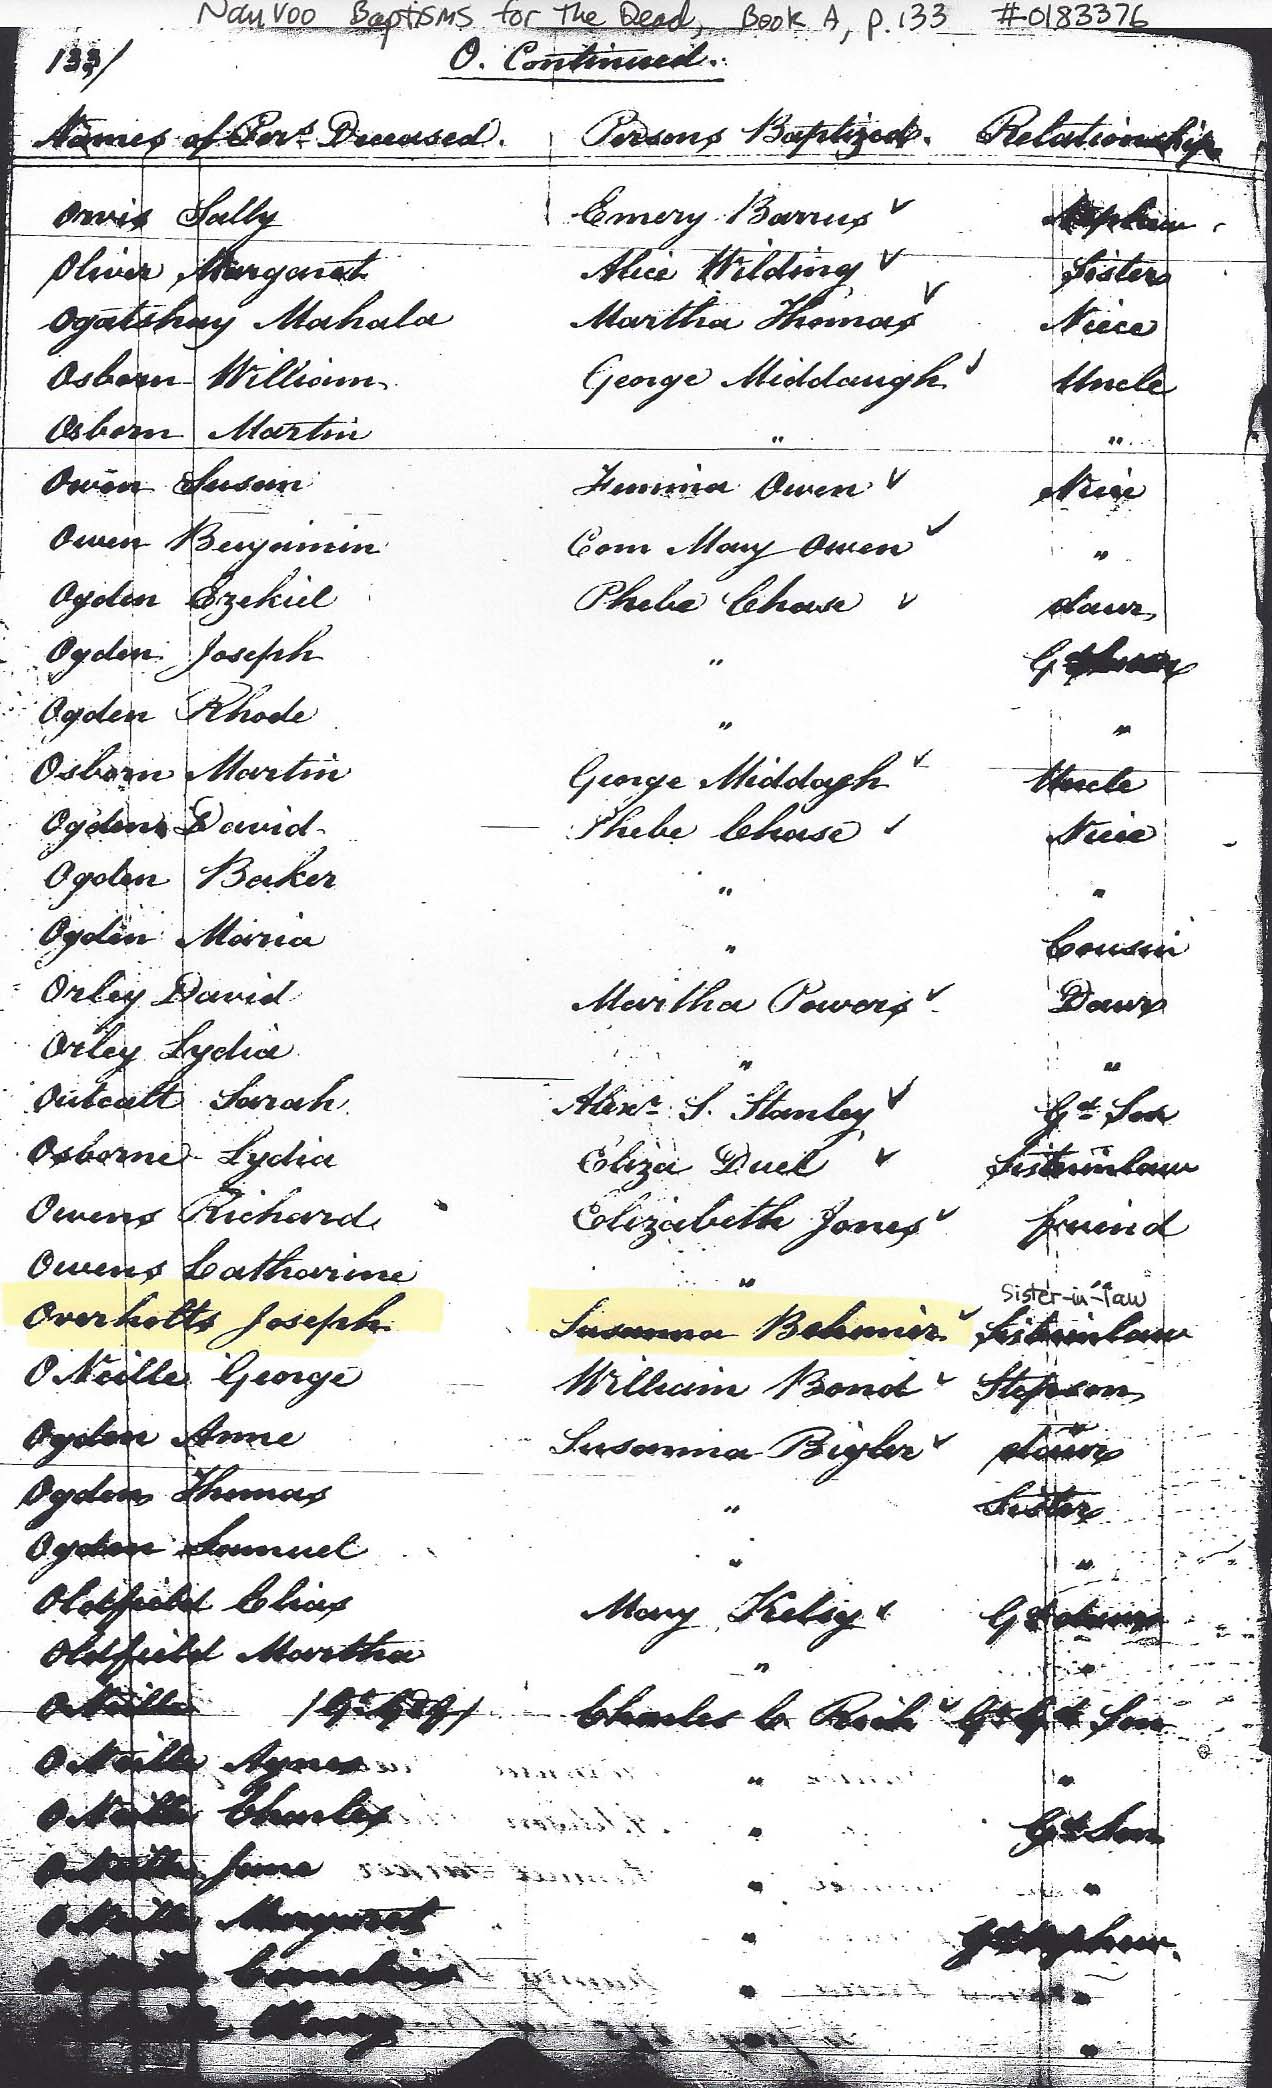 Nauvoo Baptisms for The Dead, Book A, p.133 #0183376
133/ O. Continued.
Names of Pers. Deceased. Persons Baptized. Relationship
Orvis Sally Emery Barrus ✓ Nephew
Oliver Margaret Alice Wilding ✓ Sister
Ogatshay Mahala Martha Thomas ✓ Niece
Osborn William George Middaugh ✓ Uncle
Osborn Martin " "
Owen Susan Jemima Owen ✓ Niece
Owen Benjamin Com Mary Owen ✓ "
Ogden Ezekiel Phebe Chase ✓ daur
Ogden Joseph " Gd
Ogden Rhode " "
Osborn Martin George Middagh ✓ Uncle
Ogden David Phebe Chase ✓ Niece
Ogden Baker " "
Ogden Maria " Cousin
Orley David Martha Powers ✓ Daur
Orley Lydia " "
Outcalt Sarah Alexr S. Stanley ✓ Gd Son
Osborne Lydia Eliza Duel ✓ Sisterinlaw
Owens Richard Elizabeth Jones ✓ friend
Owens Catharine " "
Sister-in-law
Overholts Joseph Susanna Behmir ✓ Sisterinlaw
ONeille George William Bond ✓ Stepson
Ogden Anne Susanna Bigler ✓ daur
Ogden Thomas " Sister
Ogden Samuel " "
Oldfield Elias Mary Kelsy ✓ Gd daur
Oldfield Martha " "
ONeille Charles C. Rich ✓ Gt Gd Son
ONeille Agnes " "
ONeille Charles " Gd Son
ONeille Jane " "
ONeille Margaret " Gd nephew
" "
Mary "